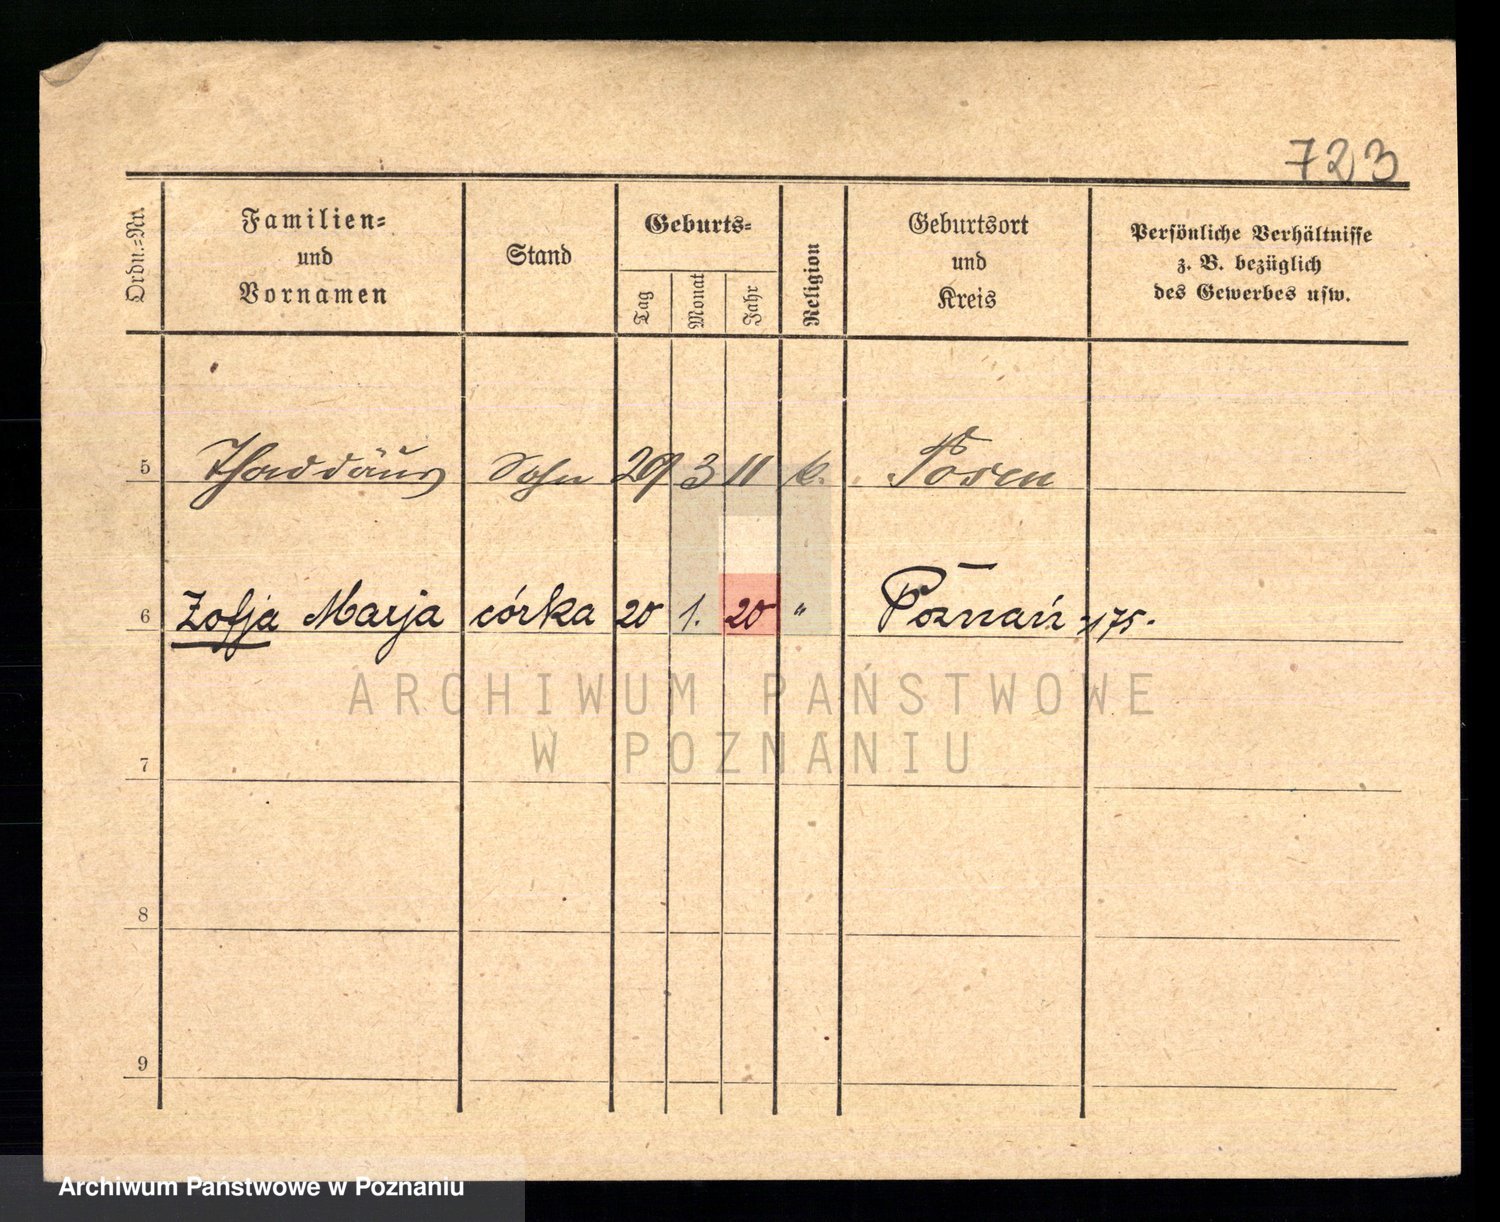 723
Ordn.=Nr.
Familien=
und
Vornamen
Stand
Geburts=
Tag
Monat
Jahr
Religion
Geburtsort
und
Kreis
Persönliche Verhältnisse
z. B. bezüglich
des Gewerbes usw.
5 Thaddäus Sohn 29 3 11 k. Posen
6 Zofja Marja córka 20 1. 20 " Poznań 175.
ARCHIWUM PAŃSTWOWE
W POZNANIU
7
8
9
Archiwum Państwowe w Poznaniu